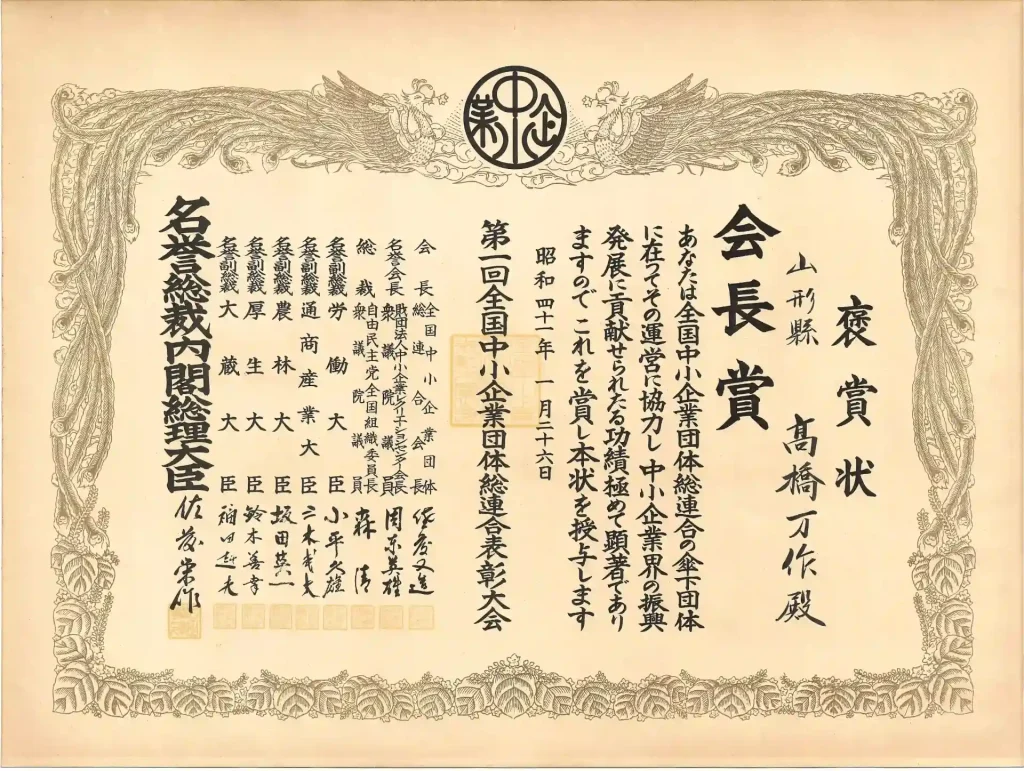 中企業
褒賞状
山形縣 髙橋万作殿
会長賞
あなたは全国中小企業団体総連合の傘下団体
に在ってその運営に協力し中小企業界の振興
発展に貢献せられたる功績極めて顕著であり
ますのでこれを賞し本状を授与します
昭和四十一年一月二十六日
第一回全国中小企業団体総連合表彰大会
会長 全国中小企業団体総連合会長 佐藤又造
名誉会長 財団法人中小企業レクリエーションセンター会長 衆議院議員
総裁 自由民主党全国組織委員長 衆議院議員 森清
名誉副総裁 労働大臣 小平久雄
名誉副総裁 通商産業大臣 三木武夫
名誉副総裁 農林大臣 坂田英一
名誉副総裁 厚生大臣 鈴木善幸
名誉副総裁 大蔵大臣 福田赳夫
名誉総裁内閣総理大臣 佐藤栄作